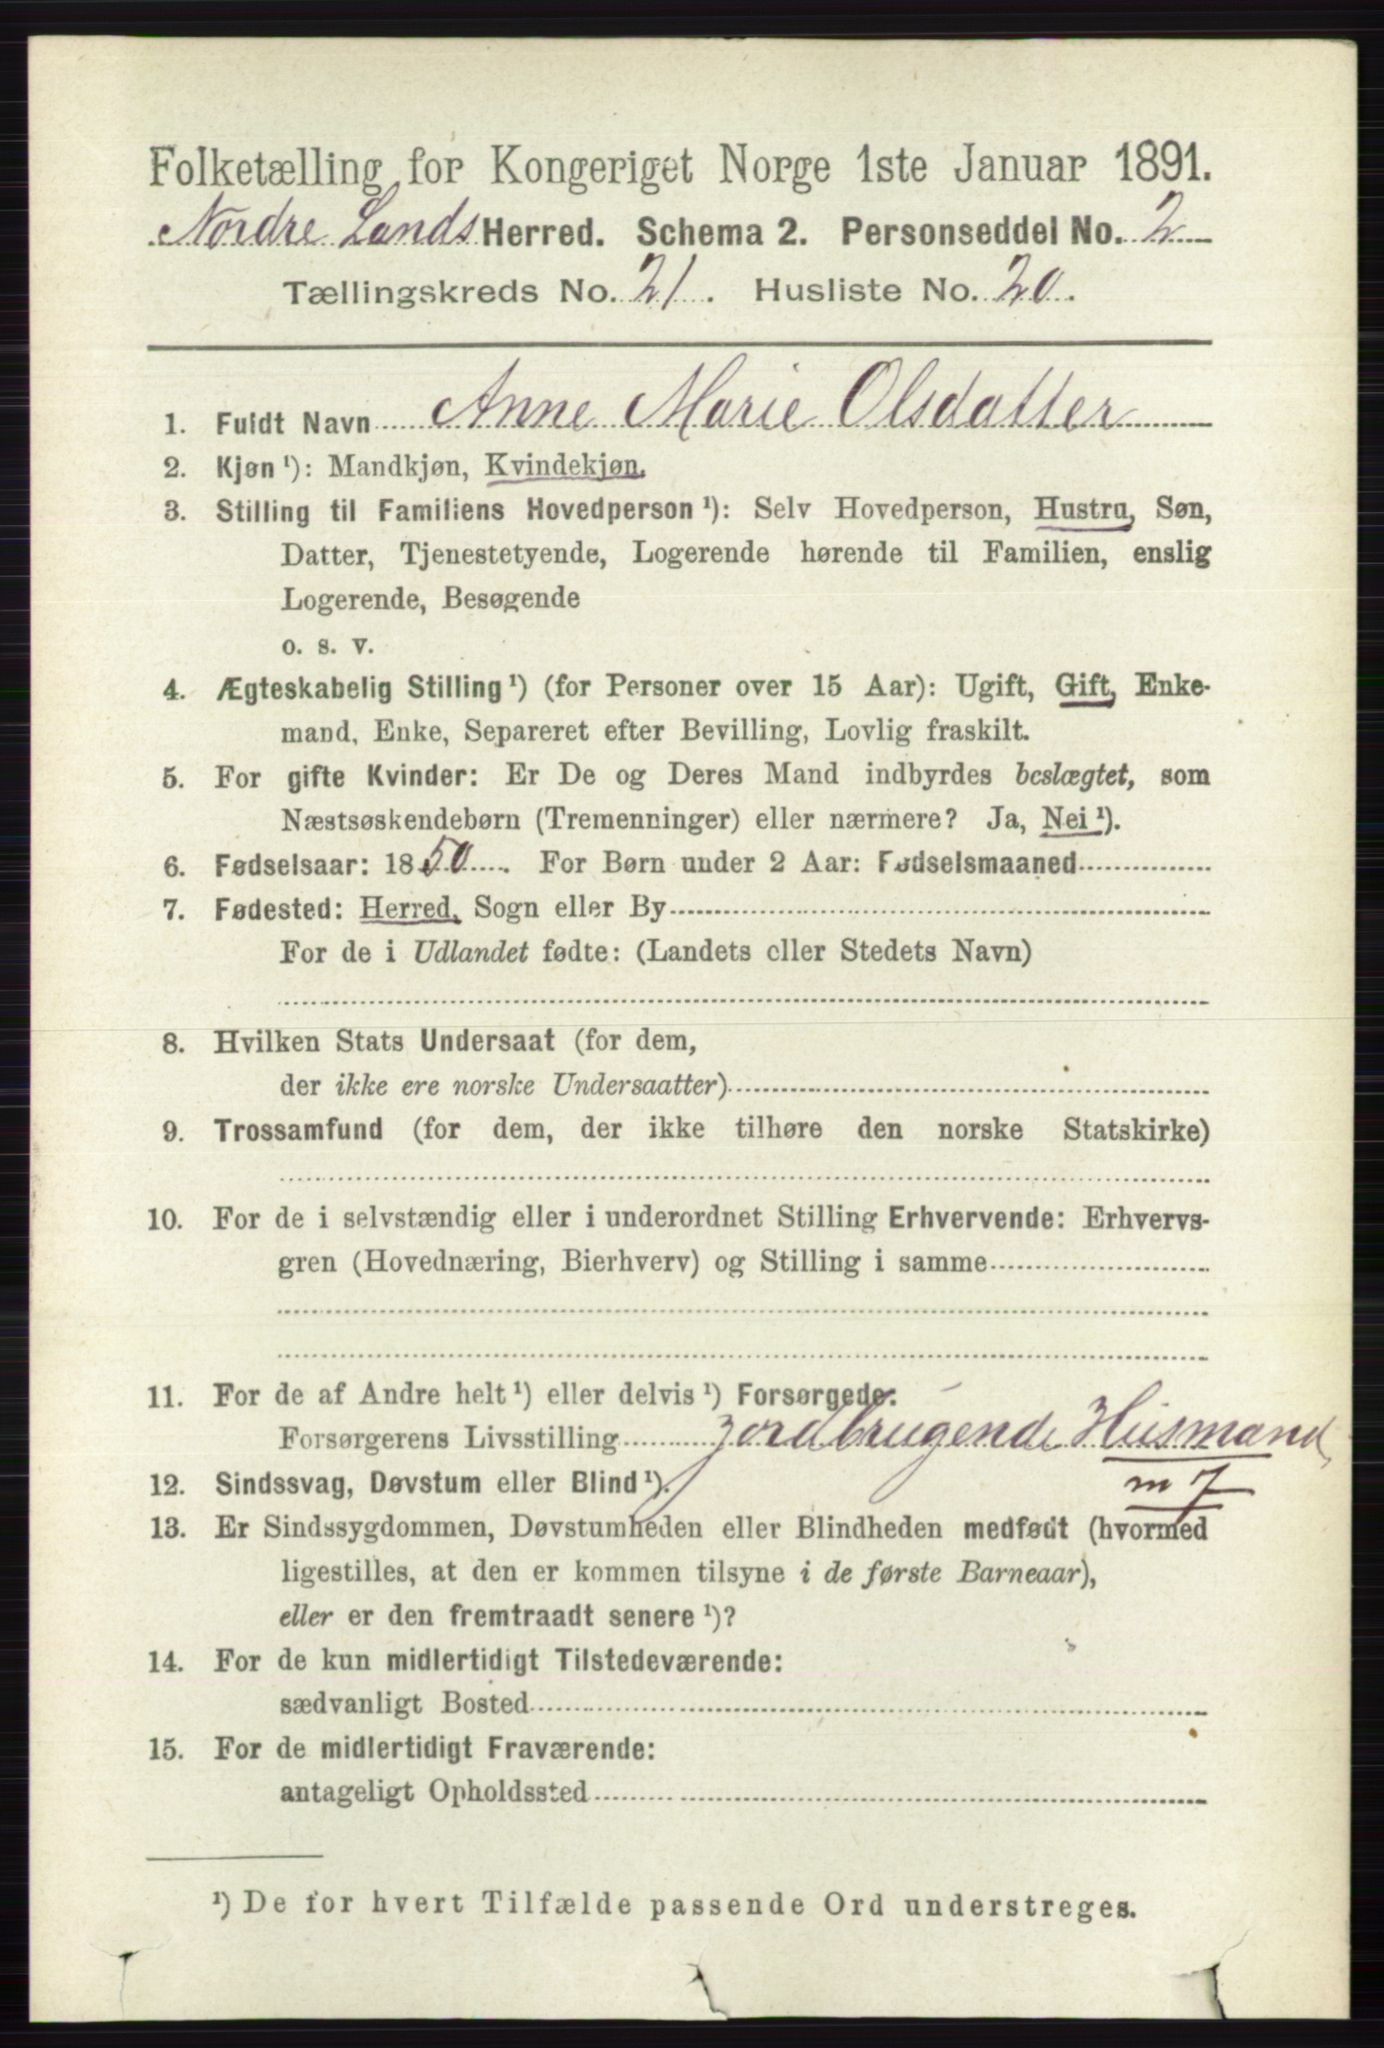 Folketælling for Kongeriget Norge 1ste Januar 1891.
Nordre Lands Herred. Schema 2. Personseddel No. 2
Tællingskreds No. 21. Husliste No. 20.
1. Fuldt Navn Anne Marie Olsdatter
2. Kjøn ¹): Mandkjøn, Kvindekjøn.
3. Stilling til Familiens Hovedperson ¹): Selv Hovedperson, Hustru, Søn,
Datter, Tjenestetyende, Logerende hørende til Familien, enslig
Logerende, Besøgende
o. s. v.
4. Ægteskabelig Stilling ¹) (for Personer over 15 Aar): Ugift, Gift, Enke-
mand, Enke, Separeret efter Bevilling, Lovlig fraskilt.
5. For gifte Kvinder: Er De og Deres Mand indbyrdes beslægtet, som
Næstsøskendebørn (Tremenninger) eller nærmere? Ja, Nei ¹).
6. Fødselsaar: 1850. For Børn under 2 Aar: Fødselsmaaned
7. Fødested: Herred, Sogn eller By
For de i Udlandet fødte: (Landets eller Stedets Navn)
8. Hvilken Stats Undersaat (for dem,
der ikke ere norske Undersaatter)
9. Trossamfund (for dem, der ikke tilhøre den norske Statskirke)
10. For de i selvstændig eller i underordnet Stilling Erhvervende: Erhvervs-
gren (Hovednæring, Bierhverv) og Stilling i samme
11. For de af Andre helt ¹) eller delvis ¹) Forsørgede:
Forsørgerens Livsstilling Jordbrugende Husmand
m 7
12. Sindssvag, Døvstum eller Blind ¹).
13. Er Sindssygdommen, Døvstumheden eller Blindheden medfødt (hvormed
ligestilles, at den er kommen tilsyne i de første Barneaar),
eller er den fremtraadt senere ¹)?
14. For de kun midlertidigt Tilstedeværende:
sædvanligt Bosted
15. For de midlertidigt Fraværende:
antageligt Opholdssted
¹) De for hvert Tilfælde passende Ord understreges.